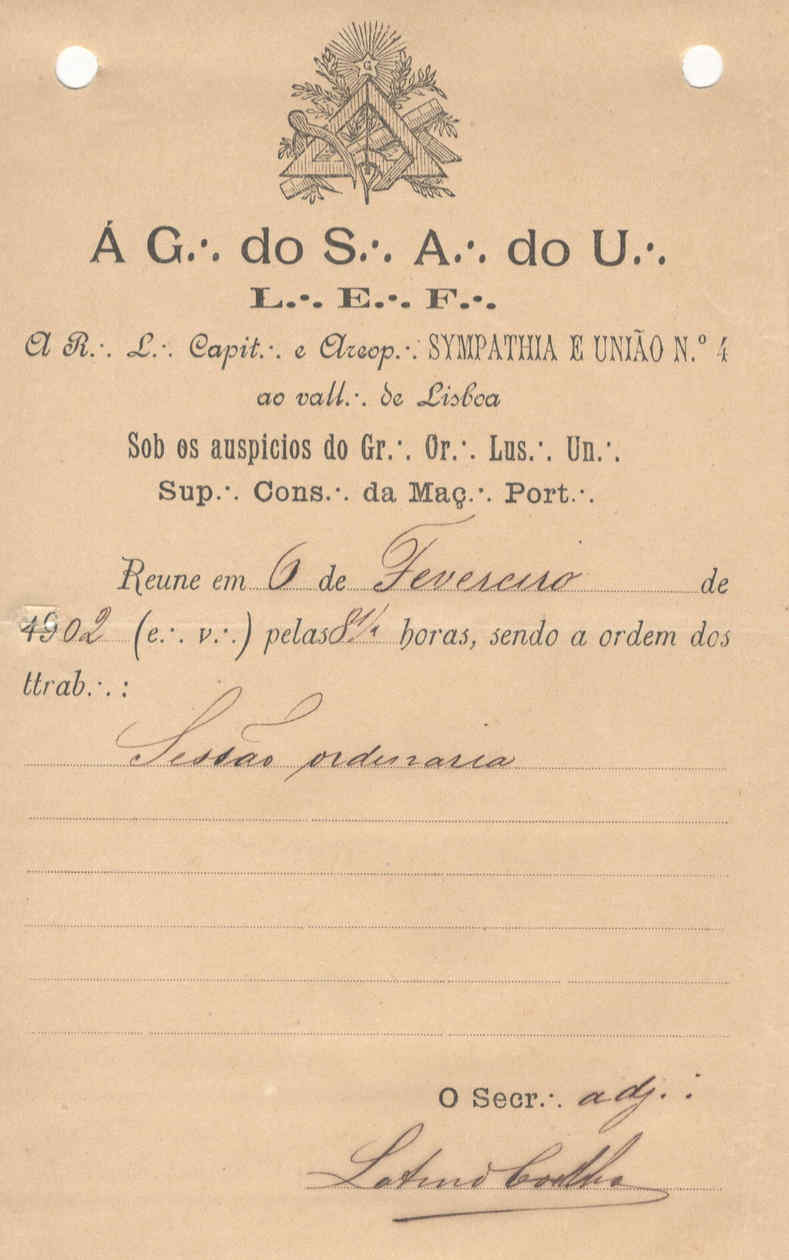 G
Á G.·. do S.·. A.·. do U.·.
L.·. E.·. F.·.
A R.·. L.·. Capit.·. e Areop.·. SYMPATHIA E UNIÃO N.º 4
ao vall.·. de Lisboa
Sob os auspicios do Gr.·. Or.·. Lus.·. Un.·.
Sup.·. Cons.·. da Maç.·. Port.·.
Reune em 6 de Fevereiro de
1902 (e.·. v.·.) pelas 8 1/2 horas, sendo a ordem dos
ttrab.·. :
Sessão ordinaria
O Secr.·. adj.·.
Latino Coelho